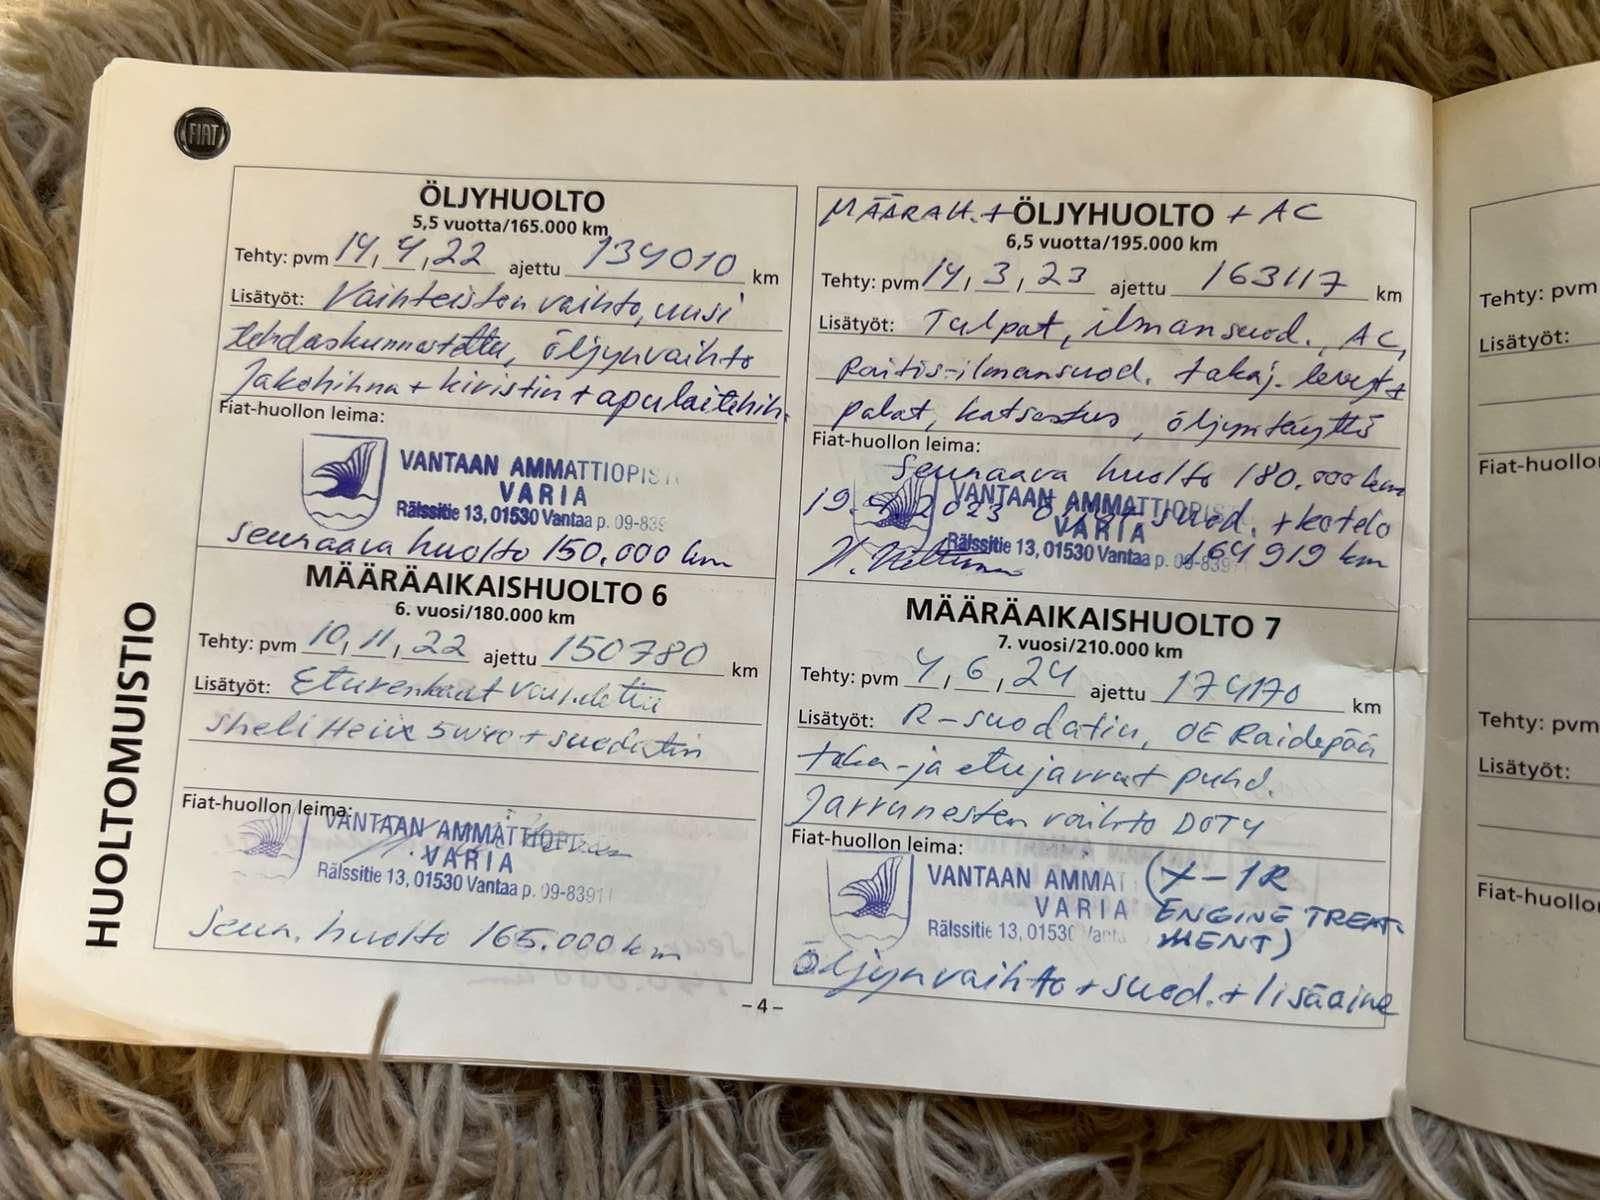 FIAT
HUOLTOMUISTIO
ÖLJYHUOLTO
5,5 vuotta/165.000 km
Tehty: pvm 14, 4, 22 ajettu 134010 km
Lisätyöt: Vaihteiston vaihto, uusi
tehdaskunnostettu, öljynvaihto
Jakohihna + kiristin + apulaitehih.
Fiat-huollon leima:
VANTAAN AMMATTIOPIST
VARIA
Rälssitie 13, 01530 Vantaa p. 09-839
seuraava huolto 150.000 km
MÄÄRÄAIKAISHUOLTO 6
6. vuosi/180.000 km
Tehty: pvm 10, 11, 22 ajettu 150780 km
Lisätyöt: Eturenkaat vaihdettu
Shell Helix 5W40 + suodatin
Fiat-huollon leima:
VANTAAN AMMATTIOPI
VARIA
Rälssitie 13, 01530 Vantaa p. 09-8391
seur. huolto 165.000 km
MÄÄRÄAI. + ÖLJYHUOLTO + AC
6,5 vuotta/195.000 km
Tehty: pvm 14, 3, 23 ajettu 163117 km
Lisätyöt: Tulpat, ilmansuod., AC,
Raitis-ilmansuod. takaj. levyt +
palat, katsastus, öljyntäyttö
Fiat-huollon leima:
Seuraava huolto 180.000 km
VANTAAN AMMATTIOPIST
19. 2023 suod. + kotelo
VARIA
Rälssitie 13, 01530 Vantaa p. 09-8391
164919 km
MÄÄRÄAIKAISHUOLTO 7
7. vuosi/210.000 km
Tehty: pvm 4, 6, 24 ajettu 174170 km
Lisätyöt: R-suodatin, OE Raidepää
taka- ja etujarrut puhd.
Jarrunesten vaihto DOT4
Fiat-huollon leima:
VANTAAN AMMAT (X-1R
VARIA ENGINE TREAT-
Rälssitie 13, 01530 Vanta MENT)
Öljynvaihto + suod. + lisäaine
– 4 –
Tehty: pvm
Lisätyöt:
Fiat-huollo
Tehty: pvm
Lisätyöt:
Fiat-huollo